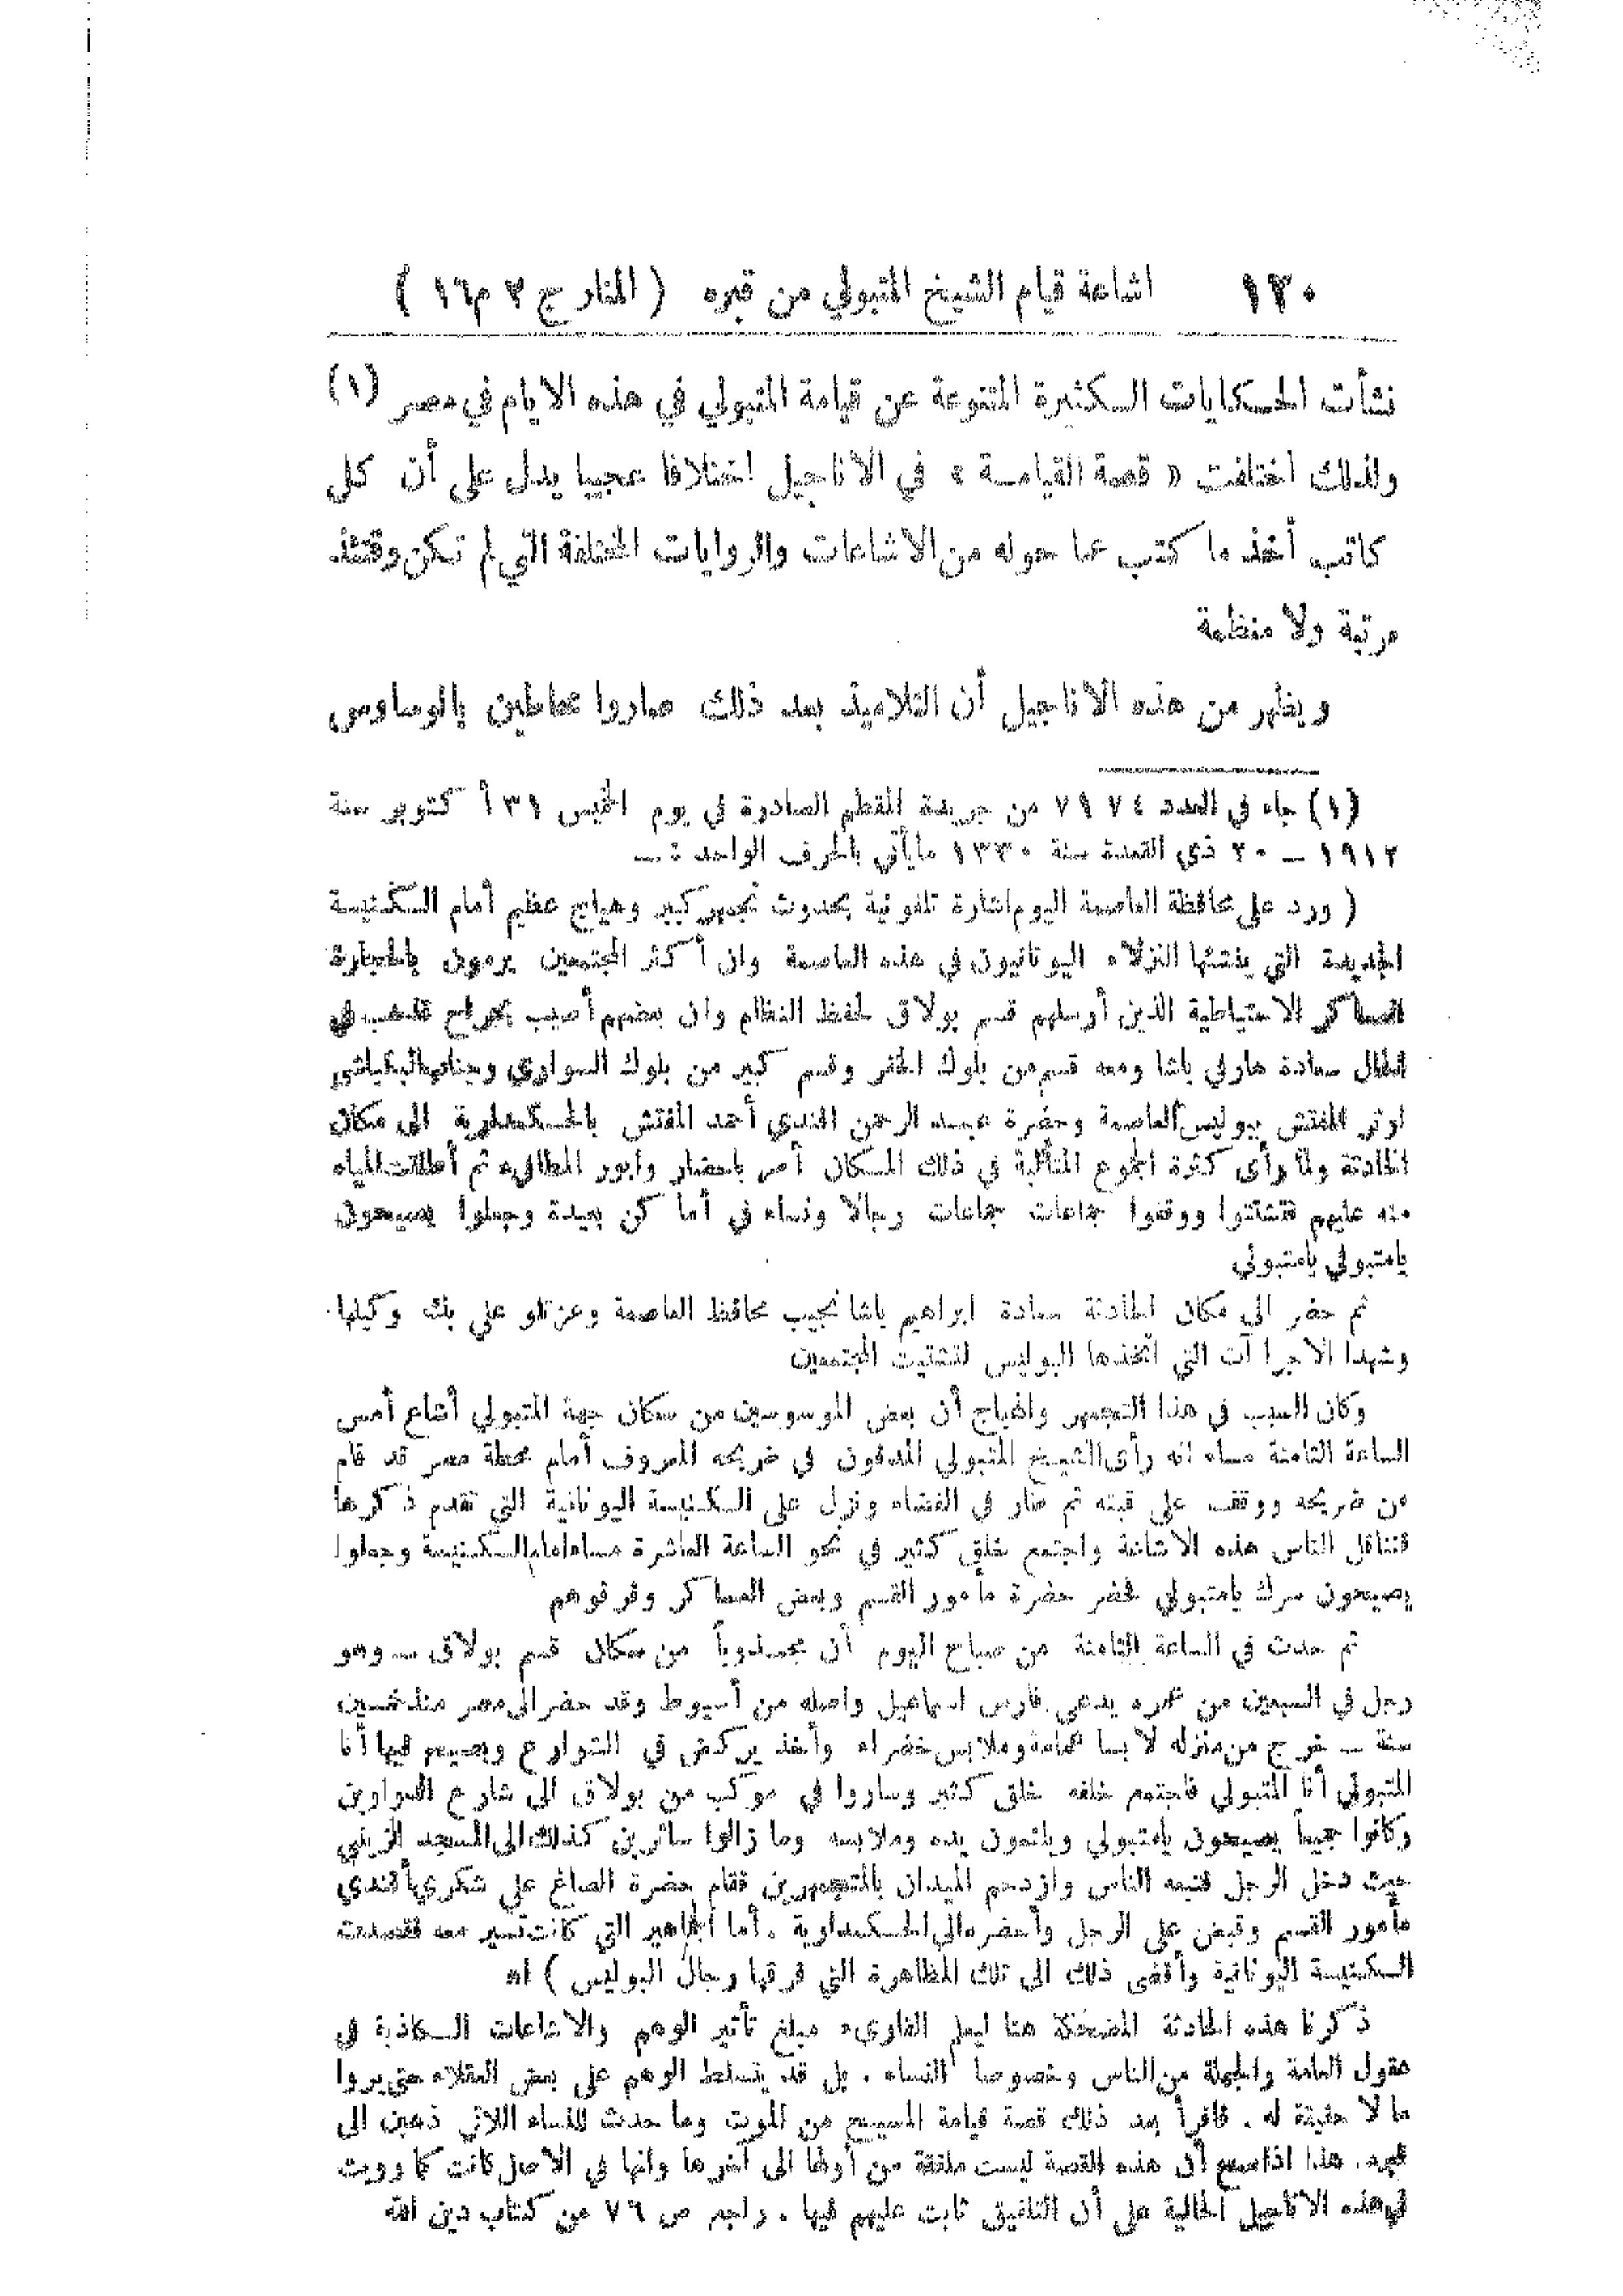 ١٢٠ اشاعة قيام الشيخ المتبولي من قبره ( المنار ج ٢ م ١٦ )
نشأت الحكايات الكثيرة المتنوعة عن قيامة المتبولي في هذه الايام في مصر (١)
ولذلك اختلفت « قصة القيامة » في الاناجيل اختلافا عجيبا يدل على أن كل
كاتب أخذ ما كتب عما حوله من الاشاعات والروايات المختلفة التي لم تكن وقتئذ
مرتبة ولا منظمة
ويظهر من هذه الاناجيل أن التلاميذ بعد ذلك صاروا محاطين بالوساوس
(١) جاء في العدد ٧٩٧٤ من جريدة المقطم الصادرة في يوم الخميس ٣١ أكتوبر سنة
١٩١٢ – ٢٠ ذي القعدة سنة ١٣٣٠ ما يأتي بالحرف الواحد : –
( ورد على محافظة العاصمة اليوم اشارة تلفونية بحدوث تجمهر كبير وهياج عظيم أمام الكنيسة
الجديدة التي ينشئها النزلاء اليونانيون في هذه العاصمة وان أكثر المجتمعين يرمون بالحجارة
العساكر الاحتياطية الذين أرسلهم قسم بولاق لحفظ النظام وان بعضهم أصيب بجراح فذهب في
الحال سعادة هارفي باشا ومعه قسم من بلوك الخفر وقسم كبير من بلوك السواري وجناب البكباشي
ارثر المفتش ببوليس العاصمة وحضرة عبد الرحمن افندي أحمد المفتش بالحكمدارية الى مكان
الحادثة ولما رأى كثرة الجموع المتألبة في ذلك المكان أمر باحضار وابور المطافيء ثم أطلقت المياه
منه عليهم فتشتتوا ووقفوا جماعات جماعات رجالا ونساء في أماكن بعيدة وجعلوا يصيحون
يامتبولي يامتبولي
ثم حضر الى مكان الحادثة سعادة ابراهيم باشا نجيب محافظ العاصمة وعزتلو علي بك وكيلها
وشهدا الاجراآت التي اتخذها البوليس لتشتيت المجتمعين
وكان السبب في هذا التجمهر والهياج أن بعض الموسوسين من سكان جهة المتبولي أشاع أمس
الساعة الثامنة مساء انه رأى الشيخ المتبولي المدفون في ضريحه المعروف أمام محطة مصر قد قام
من ضريحه ووقف على قبته ثم طار في الفضاء ونزل على الكنيسة اليونانية التي تقدم ذكرها
فتناقل الناس هذه الاشاعة واجتمع خلق كثير في نحو الساعة العاشرة مساء امام الكنيسة وجعلوا
يصيحون سرك يامتبولي فحضر حضرة مأمور القسم وبعض العساكر وفرقوهم
ثم حدث في الساعة الثامنة من صباح اليوم أن مجذوباً من سكان قسم بولاق – وهو
رجل في السبعين من عمره يدعى فارس اسماعيل واصله من أسيوط وقد حضر الى مصر منذ خمسين
سنة – خرج من منزله لابسا عمامة وملابس خضراء وأخذ يركض في الشوارع ويصيح فيها أنا
المتبولي أنا المتبولي فاجتمع خلفه خلق كثير وساروا في موكب من بولاق الى شارع الدواوين
وكانوا جميعاً يصيحون يامتبولي ويلثمون يده وملابسه وما زالوا سائرين كذلك الى المسجد الزينبي
حيث دخل الرجل فتبعه الناس وازدحم الميدان بالمتجمهرين فقام حضرة الصاغ علي شكري أفندي
مأمور القسم وقبض على الرجل وأحضره الى الحكمدارية . أما الجماهير التي كانت تسير معه فقصدت
الكنيسة اليونانية وأفضى ذلك الى تلك المظاهرة التي فرقها رجال البوليس ) اه
ذكرنا هذه الحادثة المضحكة هنا ليعلم القاريء مبلغ تأثير الوهم والاشاعات الكاذبة في
عقول العامة والجهلة من الناس وخصوصا النساء . بل قد يتسلط الوهم على بعض العقلاء حتى يروا
ما لا حقيقة له . فاقرأ بعد ذلك قصة قيامة المسيح من الموت وما حدث للنساء اللاتي ذهبن الى
قبره . هذا اذا صح أن هذه القصة ليست ملفقة من أولها الى آخرها وانها في الاصل كانت كما رويت
في هذه الاناجيل الحالية على أن التلفيق ثابت عليهم فيها . راجع ص ٧٦ من كتاب دين الله